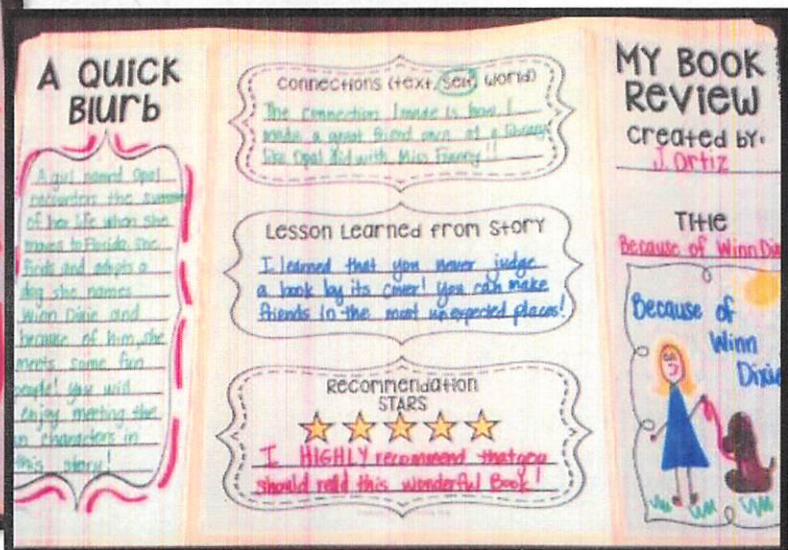 A QUICK
BLURB
A girl named Opal
the summer
of her life when she
moves to Florida. She
finds and adopts a
dog she names
Winn Dixie and
because of him, she
meets some fun
people! You will
enjoy meeting the
characters in
this story!
Connections (text, self, world)
The connection I made is how I
made a great friend once at a library
like Opal did with Miss Franny!!
Lesson Learned from Story
I learned that you never judge
a book by its cover! You can make
friends in the most unexpected places!
Recommendation
STARS
I HIGHLY recommend that you
should read this wonderful Book!
MY BOOK
REVIEW
Created by:
J. Ortiz
Title
Because of Winn Dix
Because of
Winn
Dixie